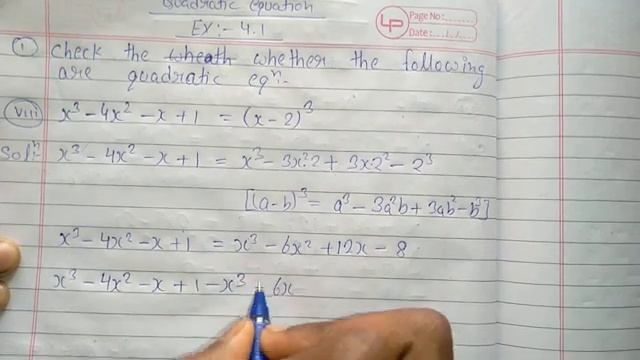 Quadratic equation
EX:- 4.1
LP
Page No:
Date:
① Check the wheath whether the following
are quadratic eqⁿ:-
(viii) x³ - 4x² - x + 1 = (x - 2)³
Solⁿ:- x³ - 4x² - x + 1 = x³ - 3x².2 + 3x2² - 2³
[(a-b)³ = a³ - 3a²b + 3ab² - b³]
x³ - 4x² - x + 1 = x³ - 6x² + 12x - 8
x³ - 4x² - x + 1 - x³ + 6x